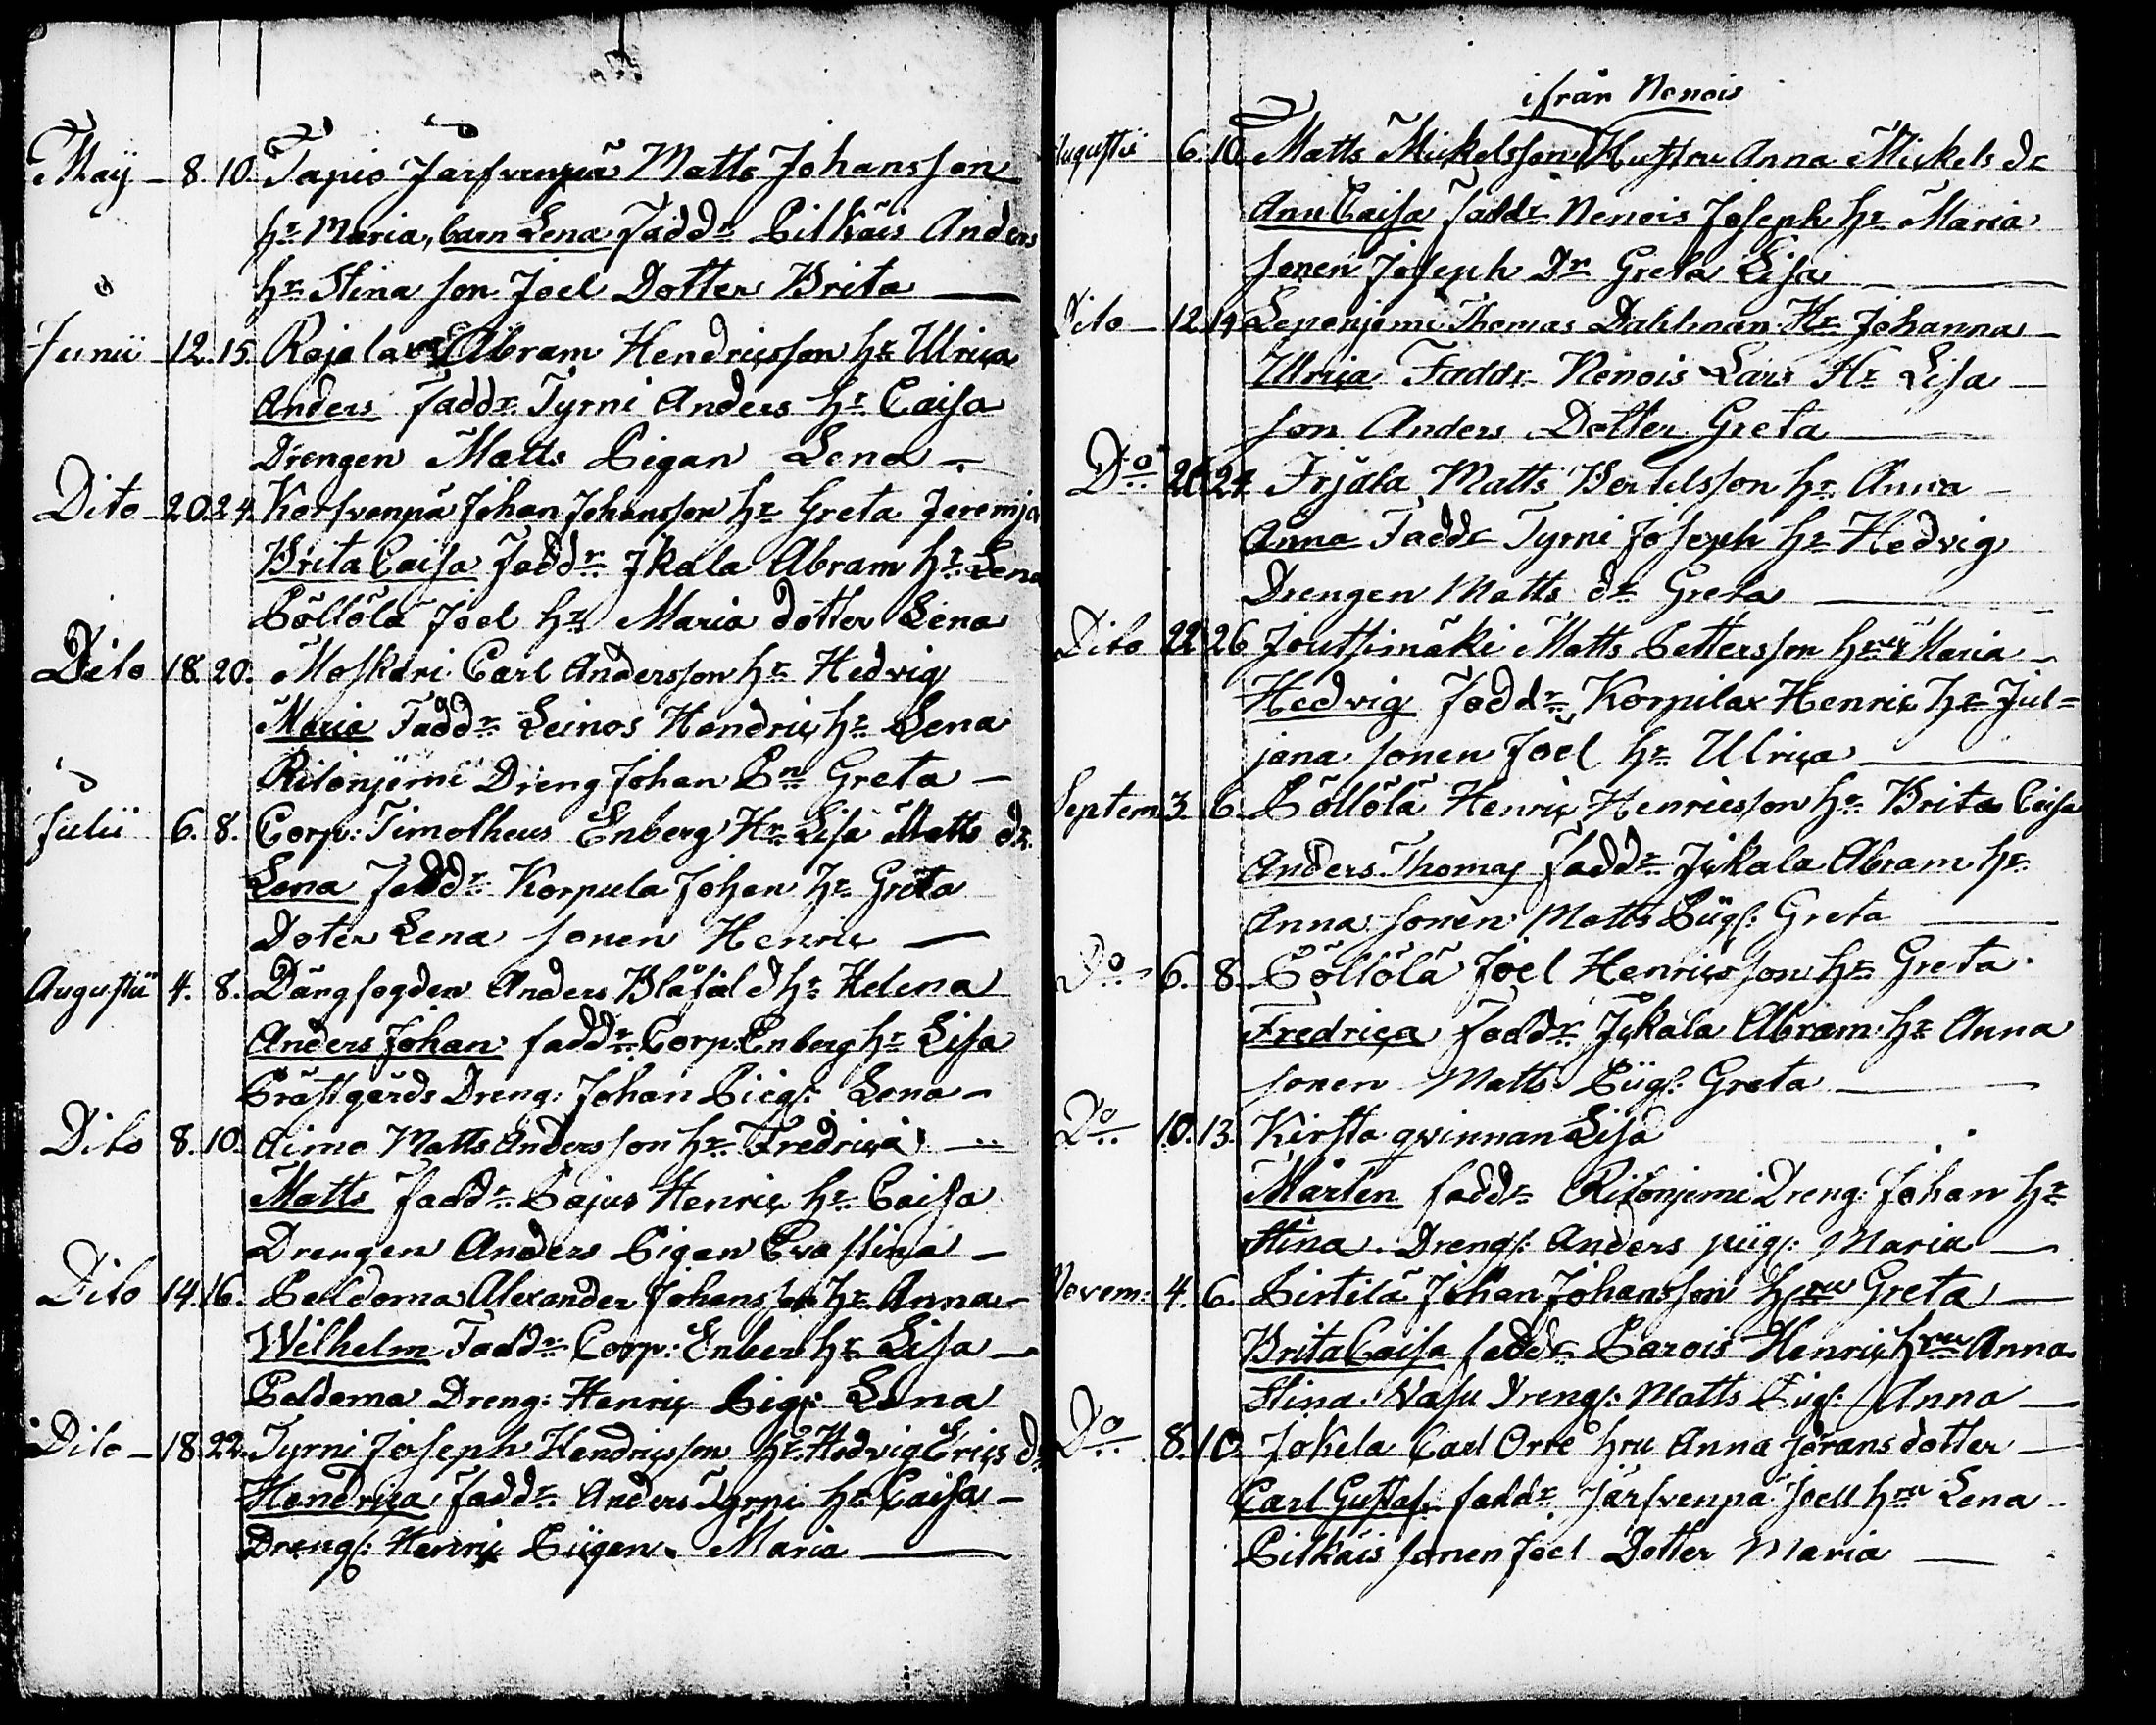 Maÿ - 8. 10. Tapio Jarfvenpä Matts Johansson
hr Maria, barn Lena Faddr Pitkäis Anders
hr Stina son Joel Dotter Brita —
Junii - 12. 15. Rajala Abram Hendricsson hr Ulrica
Anders Faddr Tyrni Anders hr Caisa
Drengen Matts Pigan Lena -
Dito - 20. 24. Korfvenpä Johan Johansson hr Greta Jeremja
Brita Caisa Faddr Jkala Abram hr Lena
Pöllölä Joel hr Maria dotter Lena
Dito 18. 20. Moskari Carl Andersson hr Hedvig
Maria Faddr Leinos Hendric hr Lena
Ritonjemi Dreng Johan Pn Greta —
Julii 6. 8. Corp: Timotheus Enberg Hr Lisa Matts dr
Lena Faddr Korpula Johan hr Greta
Doter Lena sonen Henric —
Augustii 4. 8. Dängfogden Anders Blåfäld hr Helena
Anders Johan faddr Corp: Enberg hr Lisa
Prästgårds Dreng: Johan Piigs: Lena -
Dito 8. 10. Aimo Matts Andersson hr Fredrica —
Matts Faddr Pajus Henric hr Caisa
Drengen Anders Pigan Eva Stina -
Dito 14. 16. Peldoma Alexander Johansson hr Anna -
Wilhelm Faddr Corp: Enber hr Lisa -
Peldoma Dreng: Henric Pigs: Lena
Dito - 18 22. Tyrni Joseph Hendricsson hr Hedvig Erics dr
Hendrica Faddr Anders Tyrni hr Caisa -
Drengs: Henric Piigen Maria —
ifrån Nenois
Augustii 6. 10. Matts Mickelsson Hustru Anna Mickels dr
Ann Caisa Faddr Nenois Joseph hr Maria
sonen Joseph Dr Greta Lisa —
Dito - 12. 19 Lepenjemi Thomas Dahlman Hr Johanna -
Ulrica Faddr Nenois Lars Hr Lisa -
son Anders Dotter Greta —
Do 24 Frjäla Matts Bertelsson hr Anna -
Anna Faddr Tyrni Joseph hr Hedvig
Drengen Matts dr Greta —
Dito 22 26 Joutsimäki Matts Pettersson hru Maria -
Hedvig Faddr Korpilax Henric hr Jul=
jana sonen Joel hr Ulrica —
Septem 3. 6. Pöllölä Henric Henricsson hr Brita Caisa
Anders Thomas Faddr Jykala Abram hr
Anna sonen Matts Piigs: Greta —
Do 6. 8. Pöllölä Joel Henricsson hr Greta
Fredrica Faddr Jykala Abram hr Anna
sonen Matts Piigs: Greta —
Do 10. 13. Kirsta qvinnan Lisa
Mårten faddr Ritonjemi Dreng: Johan hr
Stina Drengs: Anders piigs: Maria -
Novem: 4. 6. Pirtilä Johan Johansson hru Greta —
Brita Caisa faddr Parois Henric hru Anna
Stina Vasu Drengs: Matts Pigs: Anna —
Do 8. 10 Jokela Carl Orre hru Anna Jörans dotter —
Carl Gustaf. faddr Järfvenpä Joell hru Lena -
Pitkäis sonen Joel Dotter Maria —